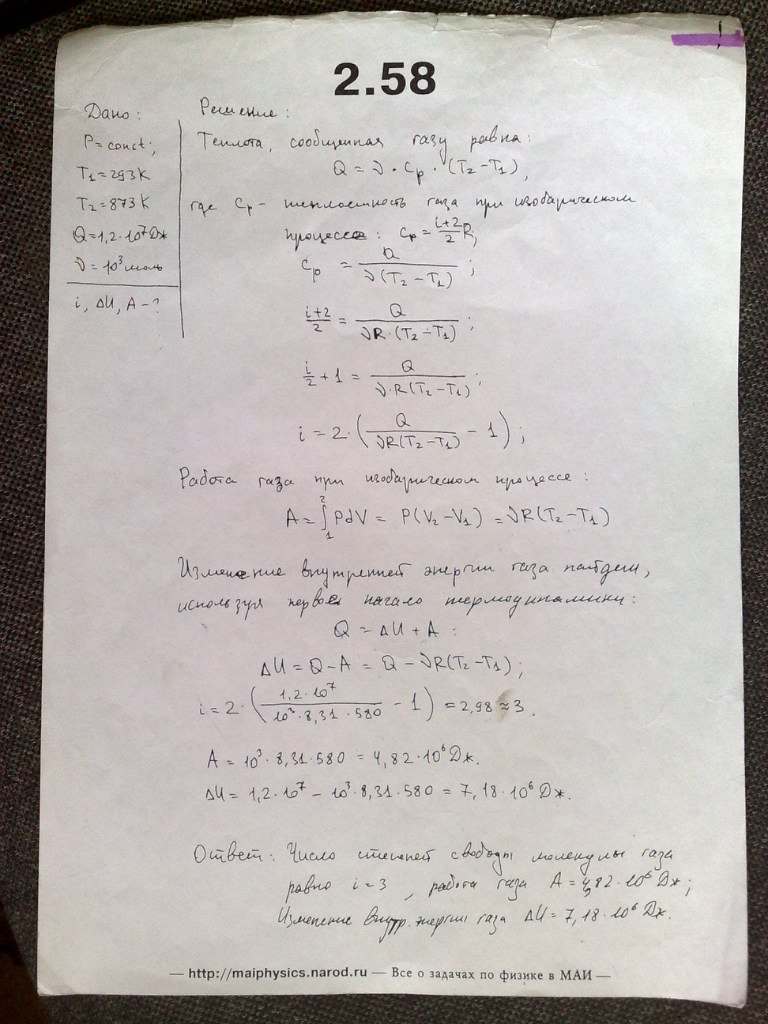 2.58
Дано:
P = const;
T₁ = 293 К
T₂ = 873 К
Q = 1,2·10⁷ Дж
ν = 10³ моль
i, ΔU, A - ?
Решение:
Теплота, сообщенная газу равна:
Q = ν · Cp · (T₂ − T₁),
где Cp - теплоемкость газа при изобарическом
процессе: Cp = (i+2)/2 R,
Cp = Q / (ν(T₂ − T₁));
(i+2)/2 = Q / (νR·(T₂ − T₁));
i/2 + 1 = Q / (ν·R(T₂ − T₁));
i = 2·(Q / (νR(T₂ − T₁)) − 1);
Работа газа при изобарическом процессе:
A = ∫₁² PdV = P(V₂ − V₁) = νR(T₂ − T₁)
Изменение внутренней энергии газа найдем,
используя первое начало термодинамики:
Q = ΔU + A:
ΔU = Q − A = Q − νR(T₂ − T₁);
i = 2·(1,2·10⁷ / (10³·8,31·580) − 1) = 2,98 ≈ 3.
A = 10³·8,31·580 = 4,82·10⁶ Дж.
ΔU = 1,2·10⁷ − 10³·8,31·580 = 7,18·10⁶ Дж.
Ответ: Число степеней свободы молекулы газа
равно i = 3, работа газа A = 4,82·10⁶ Дж;
Изменение внутр. энергии газа ΔU = 7,18·10⁶ Дж.
— http://maiphysics.narod.ru — Все о задачах по физике в МАИ —